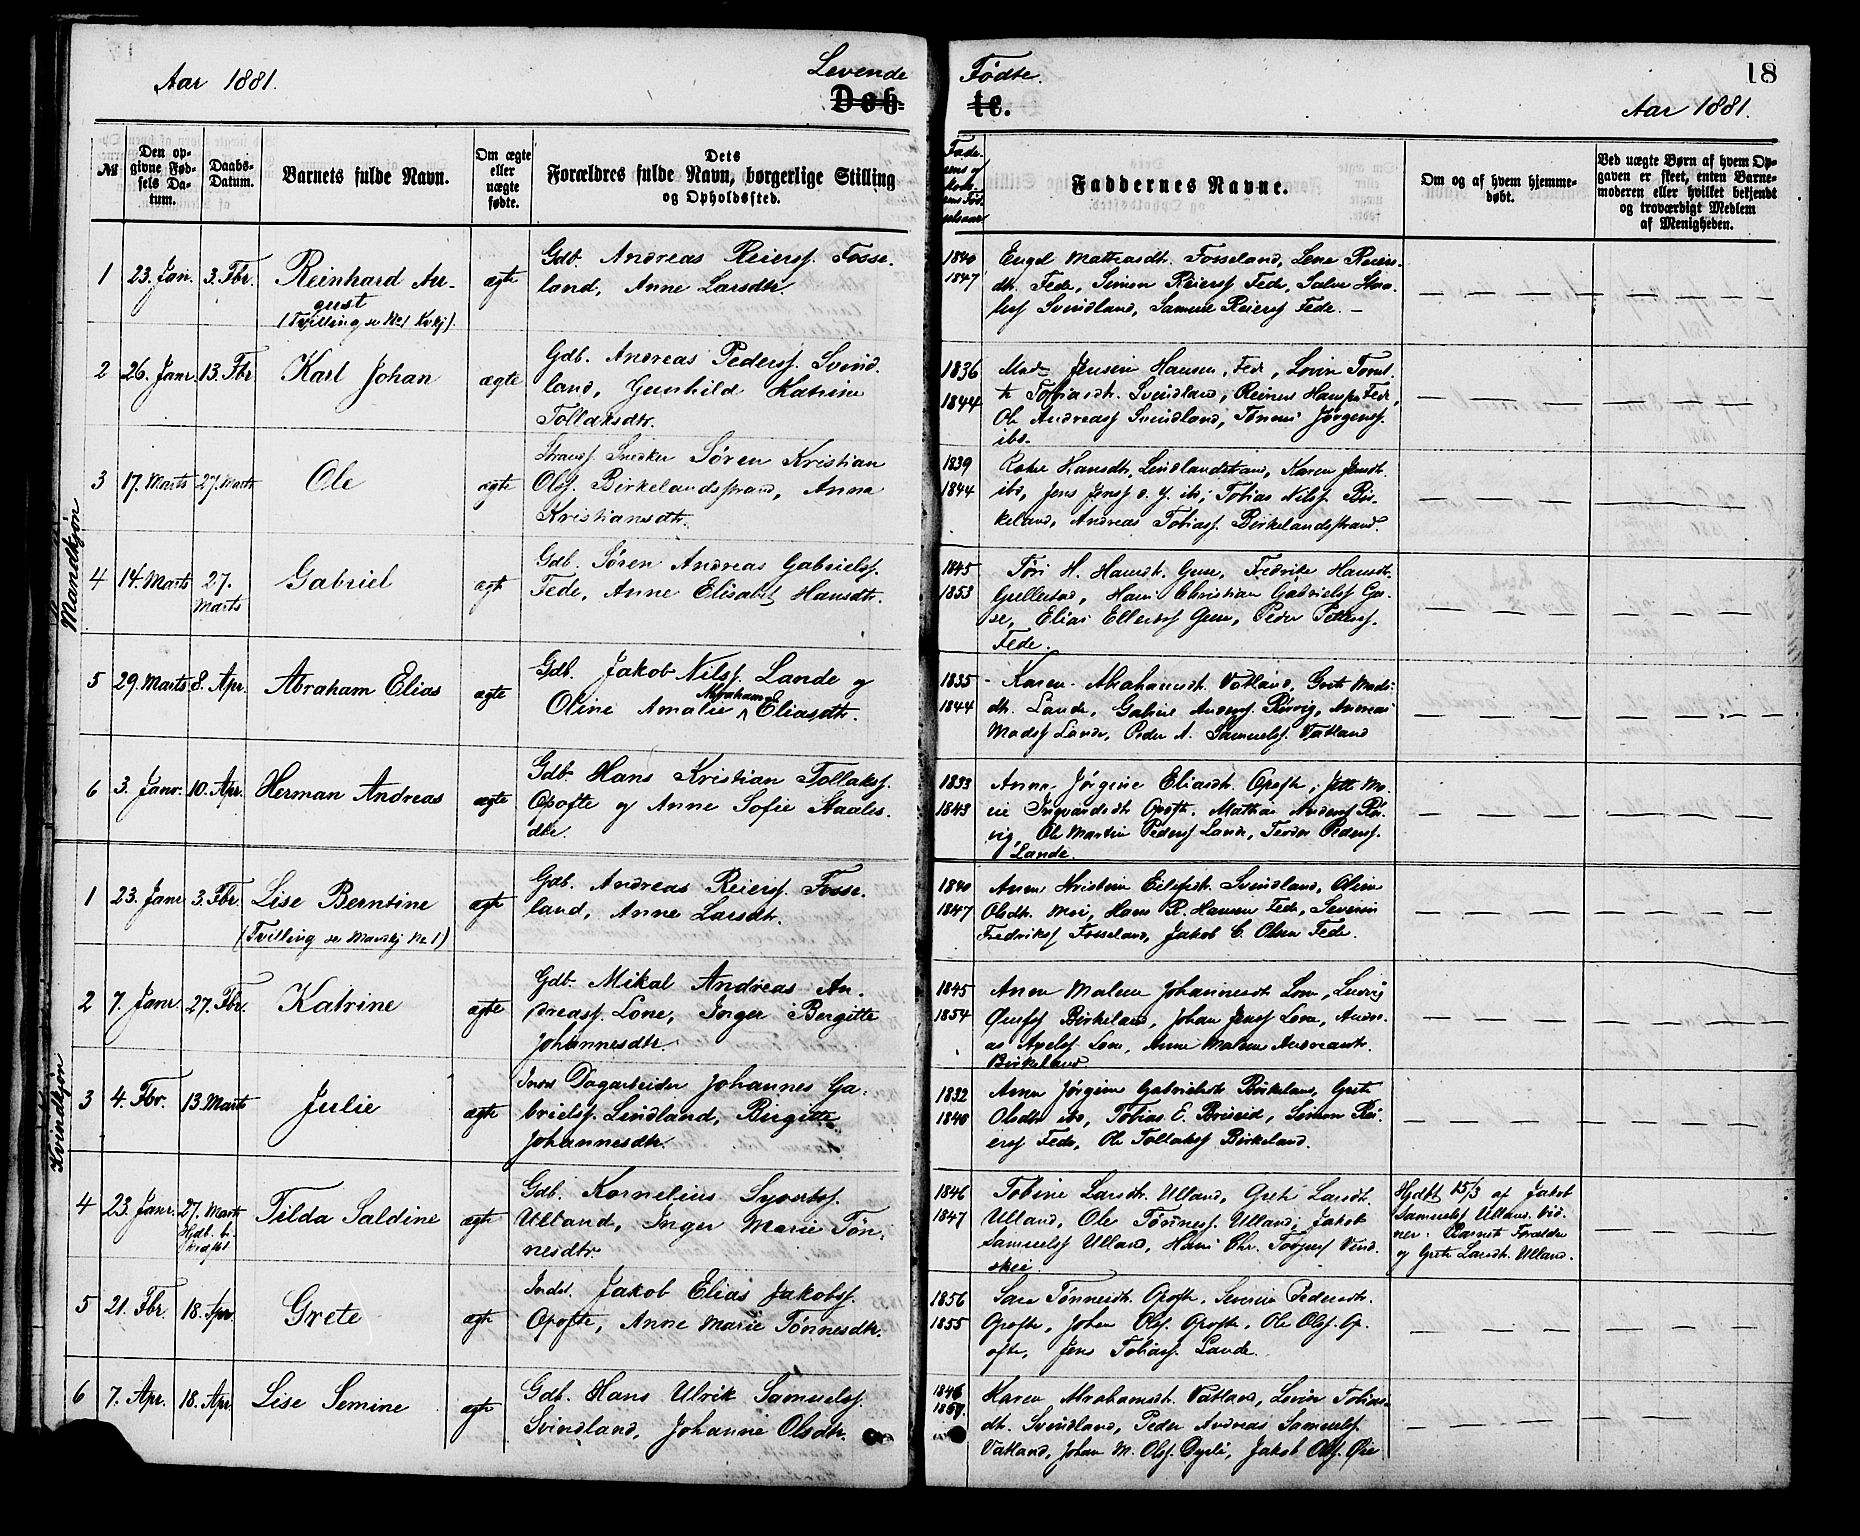 Aar 1881.
Levende Fødte.
18
Døbte.
Aar 1881.
№
Den opgivne Fødsels Datum.
Daabs-Datum.
Barnets fulde Navn.
Om ægte eller uægte fødte.
Dets Forældres fulde Navn, borgerlige Stilling og Opholdssted.
Faddernes Navne.
Om og af hvem hjemmedøbt.
Ved uægte Børn af hvem Opgaven er skeet, enten Barnemoderen eller hvilket bekjendt og troværdigt Medlem af Menigheden.
Mandkjøn
1 23. Jan. 3. Fbr. Reinhard August ægte
(Tvilling se No 1 Kvkj).
Gdb. Andreas Reiersf. Fosse-
land, Anne Larsdtr.
1840
1847
Engel Mathiasdtr. Fosseland, Lene Reiers-
dtr. Fede, Simon Reiersf. Fede, Salve
Svindland, Samuel Reiersf. Fede. —
2 26. Janr. 13. Fbr Karl Johan ægte
Gdb. Andreas Pedersf. Svind-
land, Gunhild Katrine
Tollaksdtr.
1836
1844
Jensen Hansen, Fede, Lovise
Tobiasdtr. Svindland, Reiner Hansen Fede,
Ole Andreasf Svindland, Tønnes Jørgensf.
ibd.
3 17. Marts 27. Marts Ole ægte
Strands. Snedker Søren Kristian
Olsf. Birkelandsstrand, Anna
Kristiansdtr.
1839
1844
Hansdtr. Lindlandstrand, Karen Jensdtr.
ibd, Jens Jensf. d. y. ibd, Tobias Nilsf Bir-
keland, Andreas Tobiasf. Birkelandsstrand.
4 14. Marts 27. Marts Gabriel ægt
Gdb. Søren Andreas Gabrielsf.
Fede, Anne Elisabet Hansdtr.
1845
1853
Tøri H. Hansdtr. Guse, Fredrike Hansdtr.
Gullestad, Hans Christian Gabrielsf Gu-
se, Elias Ellertsf Guse, Peder Pedersf.
Fede.
5 29. Marts 8. Apr. Abraham Elias ægte
Gdb. Jakob Nilsf. Lande og
Oline Amalie Abraham Eliasdtr.
1835
1844
Karen Abrahamsdtr. Vatland, Grete Mads-
dtr. Lande, Gabriel Andersf. Rørvig, Andreas
Madsf Lande, Peder A. Samuelsf. Vatland
6 3. Janr. 10. Apr. Herman Andreas ægte
Gdb. Hans Kristian Tollaksf.
Opofte og Anne Sofie Staales-
dtr.
1833
1843
Anne Jørgine Eliasdtr. Opofte, Jette Ma-
rie Ingvardsdtr Opofte, Mathias Andersf Rør-
vig, Ole Martin Pedersf Lande, Teodor Pedersf.
Lande.
Kvindkjøn
1 23. Janr 3. Fbr. Lise Berntine ægte
(Tvilling se Mandkj No 1)
Gdb. Andreas Reiersf. Fosse-
land, Anne Larsdtr.
1840
1847
Anne Kristine Eilefsdtr. Svindland, Oline
Olsdtr. Moi, Hans R. Hansen Fede, Severin
Fredriksf Fosseland, Jakob C. Olsen Fede.
2 7. Janr. 27. Fbr. Katrine ægte
Gdb. Mikal Andreas An-
dreasf. Lone, Inger Birgitte
Johannesdtr.
1845
1854
Anne Malene Johannesdtr Lone, Ludvig
Birkeland, Johan Jensf Lone, Andre-
as Axelsf Lone, Anne Malene Andreasdtr.
Birkeland.
3 4. Fbr. 13. Marts Julie ægte
Inds Dagarbeider Johannes Ga-
brielsf. Lindland, Birgitte
Johannesdtr.
1832
1840
Anne Jørgine Gabrielsdtr Birkeland, Grete
Olsdtr ibd, Tobias E. Briseid, Simon Rei-
ersf Fede, Ole Tollaksf Birkeland.
4 23. Janr. 27. Marts Tilda Saldine ægte
Hjdb. bekræftet
Gdb. Kornelius Syvertsf.
Ulland, Inger Marie Tøn-
nesdtr
1846
1847
Tobine Larsdtr. Ulland, Grete Larsdtr.
Ulland, Ole Tønnesf. Ulland, Jakob
Samuelsf Ulland, Hans Chr. Tobiasf Vind-
skei.
Hjdbt 15/3 af Jakob
Samuelsf Ulland. Vid-
ner: Barnets Forældre
og Grete Larsdtr. Ulland.
5 21. Fbr. 18. Apr Grete ægte
Indst. Jakob Elias Jakobsf.
Opofte, Anne Marie Tønnesdtr.
1856
1855
Sara Tønnesdtr. Opofte, Severine Pedersdtr.
Opofte, Johan Olsf. Opofte, Ole Olsf. Op-
ofte, Jens Tobiasf. Lande.
6 7. Apr. 18. Apr. Lise Semine ægte
Gdb. Hans Ulrik Samuelsf.
Svindland, Johanne Olsdtr.
1846
1857.
Karen Abrahamsdtr. Vatland, Lovise Tobias-
dtr. Svindland, Peder Andreas Samuelsf.
Vatland, Johan M. Olsf. Dyrli, Jakob Olsf. Øie